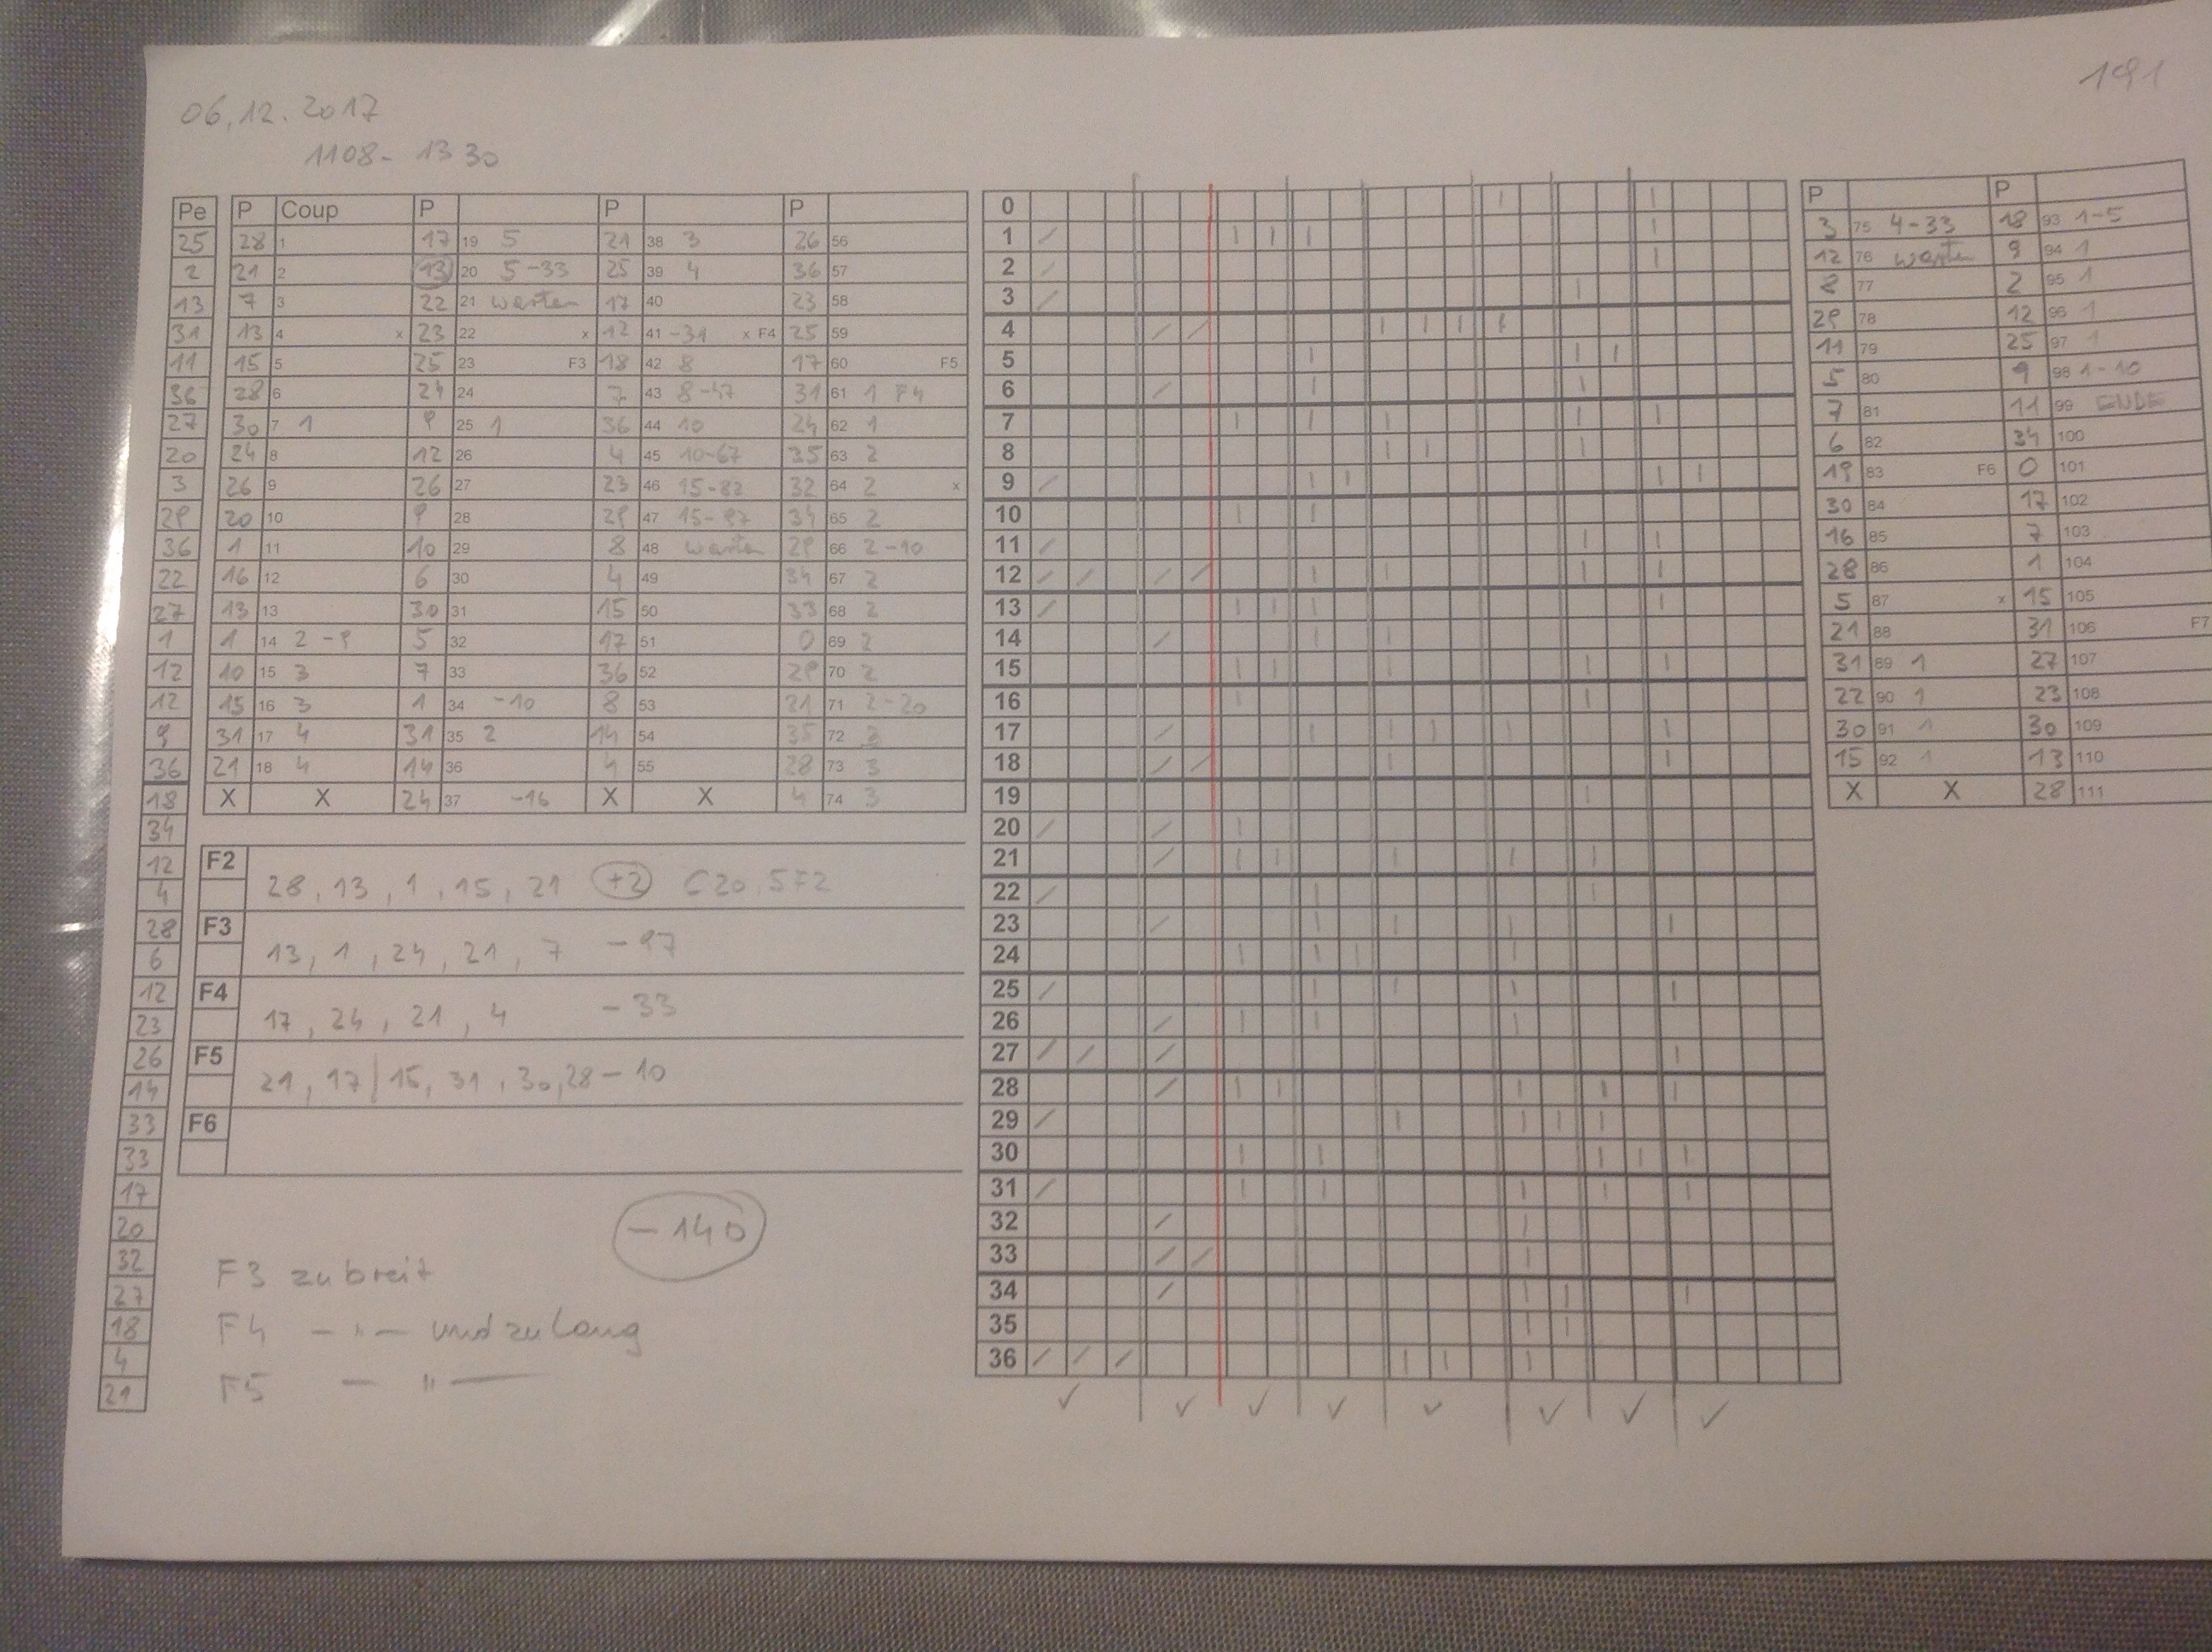 191
06.12.2017
1108- 1330
Pe P Coup P P P
25 28 1 17 19 5 21 38 3 26 56
2 21 2 13 20 5-33 25 39 4 36 57
13 7 3 22 21 warten 17 40 23 58
31 13 4 x 23 22 x 12 41 -31 x F4 25 59
11 15 5 25 23 F3 18 42 8 17 60 F5
36 28 6 24 24 7 43 8-47 31 61 1 F4
27 30 7 1 9 25 1 36 44 10 24 62 1
20 24 8 12 26 4 45 10-67 35 63 2
3 26 9 26 27 23 46 15-82 32 64 2 x
29 20 10 9 28 29 47 15-97 34 65 2
36 1 11 10 29 8 48 warten 29 66 2-10
22 16 12 6 30 4 49 34 67 2
27 13 13 30 31 15 50 33 68 2
1 1 14 2-9 5 32 17 51 0 69 2
12 10 15 3 7 33 36 52 29 70 2
12 15 16 3 1 34 -10 8 53 21 71 2-20
9 31 17 4 31 35 2 14 54 35 72 3
36 21 18 4 14 36 4 55 28 73 3
18 X X 24 37 -16 X X 4 74 3
34
12
4
28
6
12
23
26
14
33
33
17
20
32
27
18
4
21
F2 28, 13, 1, 15, 21 +2 C20, 5F2
F3 13, 1, 24, 21, 7 -97
F4 17, 24, 21, 4 -33
F5 21, 17 | 15, 31, 30, 28 -10
F6
-140
F3 zu breit
F4 -"- und zu lang
F5 - " -
0
1
2
3
4
5
6
7
8
9
10
11
12
13
14
15
16
17
18
19
20
21
22
23
24
25
26
27
28
29
30
31
32
33
34
35
36
P P
3 75 4-33 18 93 1-5
12 76 warten 9 94 1
8 77 2 95 1
29 78 12 96 1
11 79 25 97 1
5 80 9 98 1-10
7 81 11 99 ENDE
6 82 34 100
19 83 F6 0 101
30 84 17 102
16 85 7 103
28 86 1 104
5 87 x 15 105
21 88 31 106 F7
31 89 1 27 107
22 90 1 23 108
30 91 1 30 109
15 92 1 13 110
X X 28 111